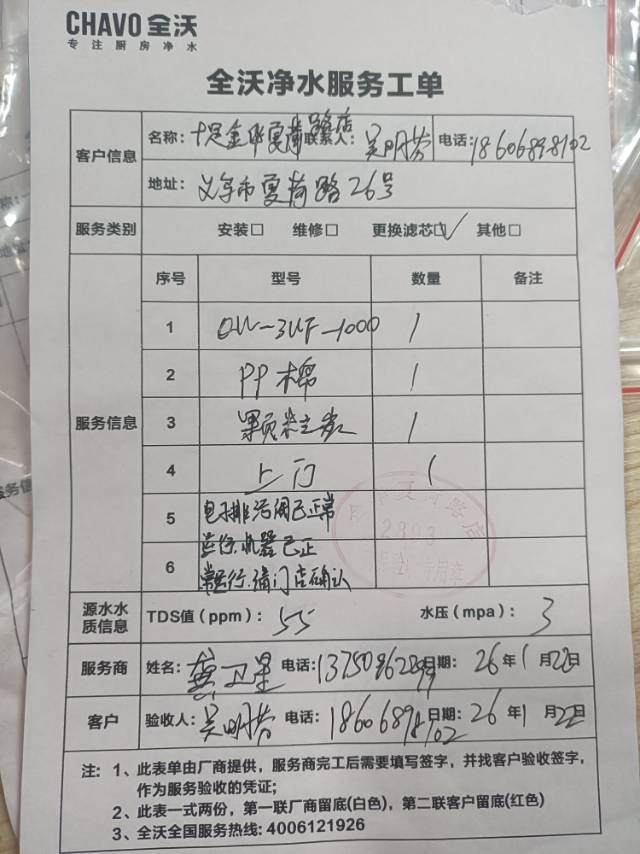 CHAVO 全沃
专注厨房净水
全沃净水服务工单
客户信息
名称: 金华夏荷路店 联系人: 吴明芳 电话: 18606898102
地址: 义乌市夏荷路26号
服务类别 安装□ 维修□ 更换滤芯□✓ 其他□
服务信息 序号 型号 数量 备注
1 QW-3UF-1000 1
2 PP棉 1
3 颗粒炭 1
4 上门 1
5 电子排污阀已正常
运行.机器已正
6 常运行.请门店确认
源水水质信息 TDS值（ppm）: 55 水压（mpa）: 3
服务商 姓名: 龚卫星 电话: 日期: 26年1月22日
客户 验收人: 吴明芳 电话: 18606898102 日期: 26年1月22日
注: 1、此表单由厂商提供，服务商完工后需要填写签字，并找客户验收签字，
作为服务验收的凭证;
2、此表一式两份，第一联厂商留底(白色)，第二联客户留底(红色)
3、全沃全国服务热线: 4006121926